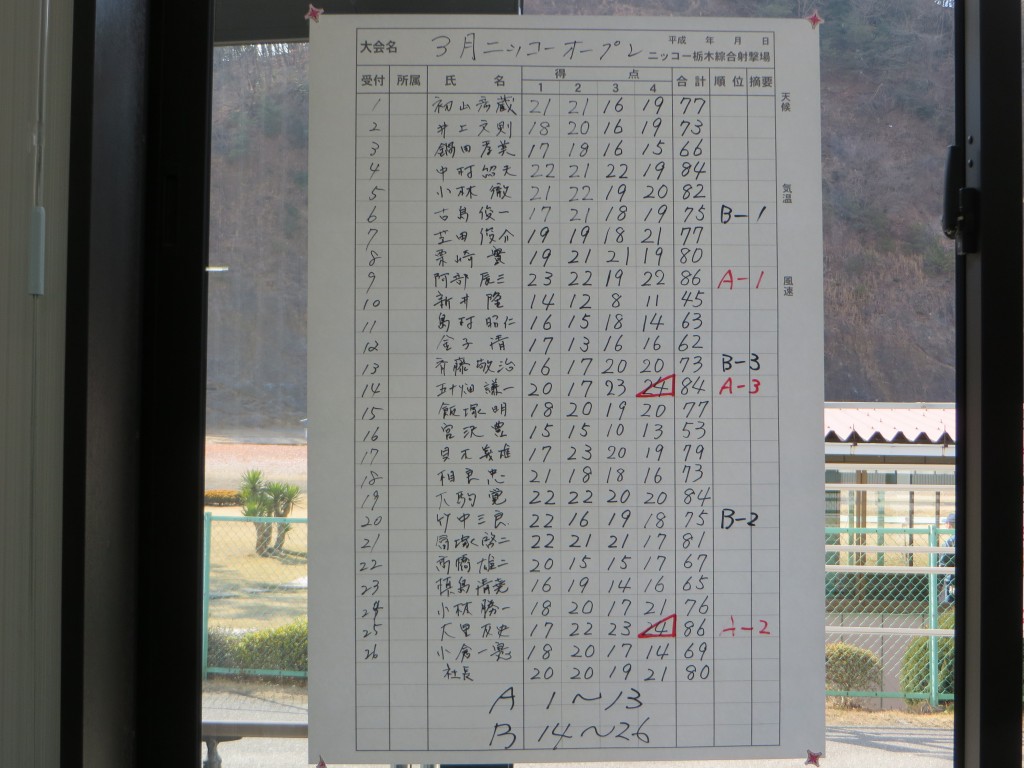 大会名 3月ニッコーオープン 平成 年 月 日
ニッコー栃木綜合射撃場
受付 所属 氏 名 得 点 合計 順位 摘要
1 2 3 4
天候
気温
風速
1 初山彦蔵 21 21 16 19 77
2 井上文則 18 20 16 19 73
3 鍋田孝英 17 18 16 15 66
4 中村悠夫 22 21 22 19 84
5 小林 徹 21 22 19 20 82
6 古島俊一 17 21 18 19 75 B-1
7 田俊介 19 19 18 21 77
8 栗崎 實 19 21 21 19 80
9 阿部辰三 23 22 19 22 86 A-1
10 新井 隆 14 12 8 11 45
11 島村昭仁 16 15 18 14 63
12 金子 清 17 13 16 16 62
13 斉藤敬治 16 17 20 20 73 B-3
14 五十畑謙一 20 17 23 24 84 A-3
15 飯塚 明 18 20 19 20 77
16 宮沢 豊 15 15 10 13 53
17 義雄 17 23 20 19 79
18 相良 忠 21 18 18 16 73
19 大駒 22 22 20 20 84
20 竹中三良 22 16 19 18 75 B-2
21 塚啓二 22 21 21 17 81
22 高橋雄二 20 15 15 17 67
23 島清 16 19 14 16 65
24 小林勝一 18 20 17 21 76
25 大里友史 17 22 23 24 86 A-2
26 小倉一 18 20 17 14 69
社長 20 20 19 21 80
A 1〜13
B 14〜26